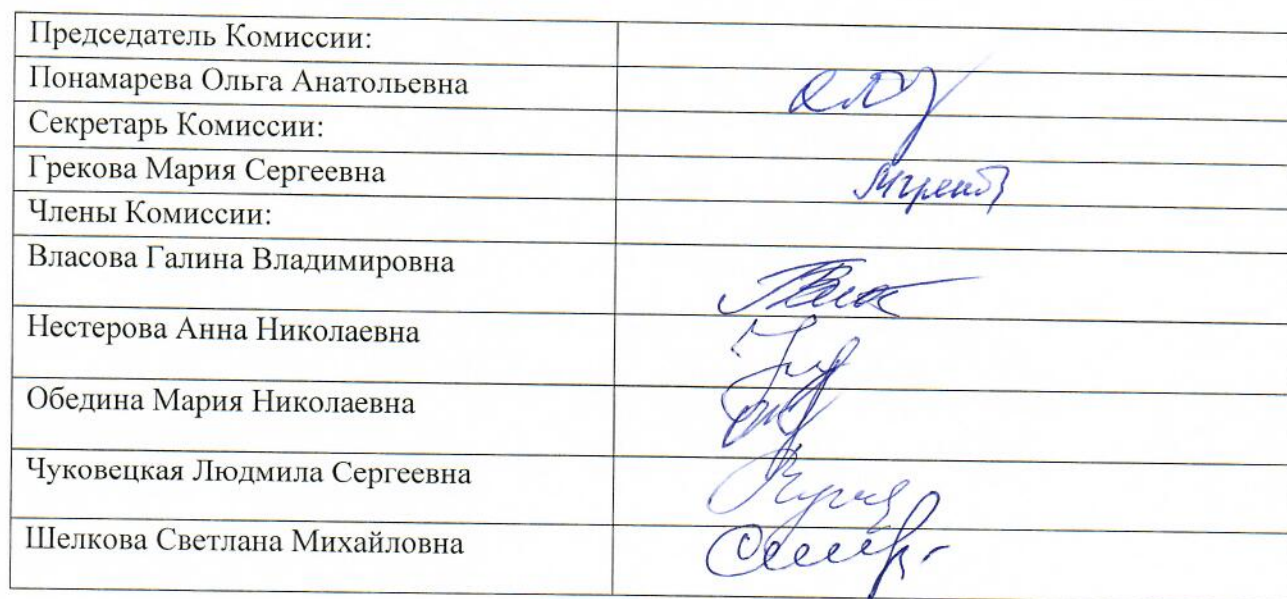 Председатель Комиссии:
Понамарева Ольга Анатольевна
Секретарь Комиссии:
Грекова Мария Сергеевна
Члены Комиссии:
Власова Галина Владимировна
Нестерова Анна Николаевна
Обедина Мария Николаевна
Чуковецкая Людмила Сергеевна
Шелкова Светлана Михайловна